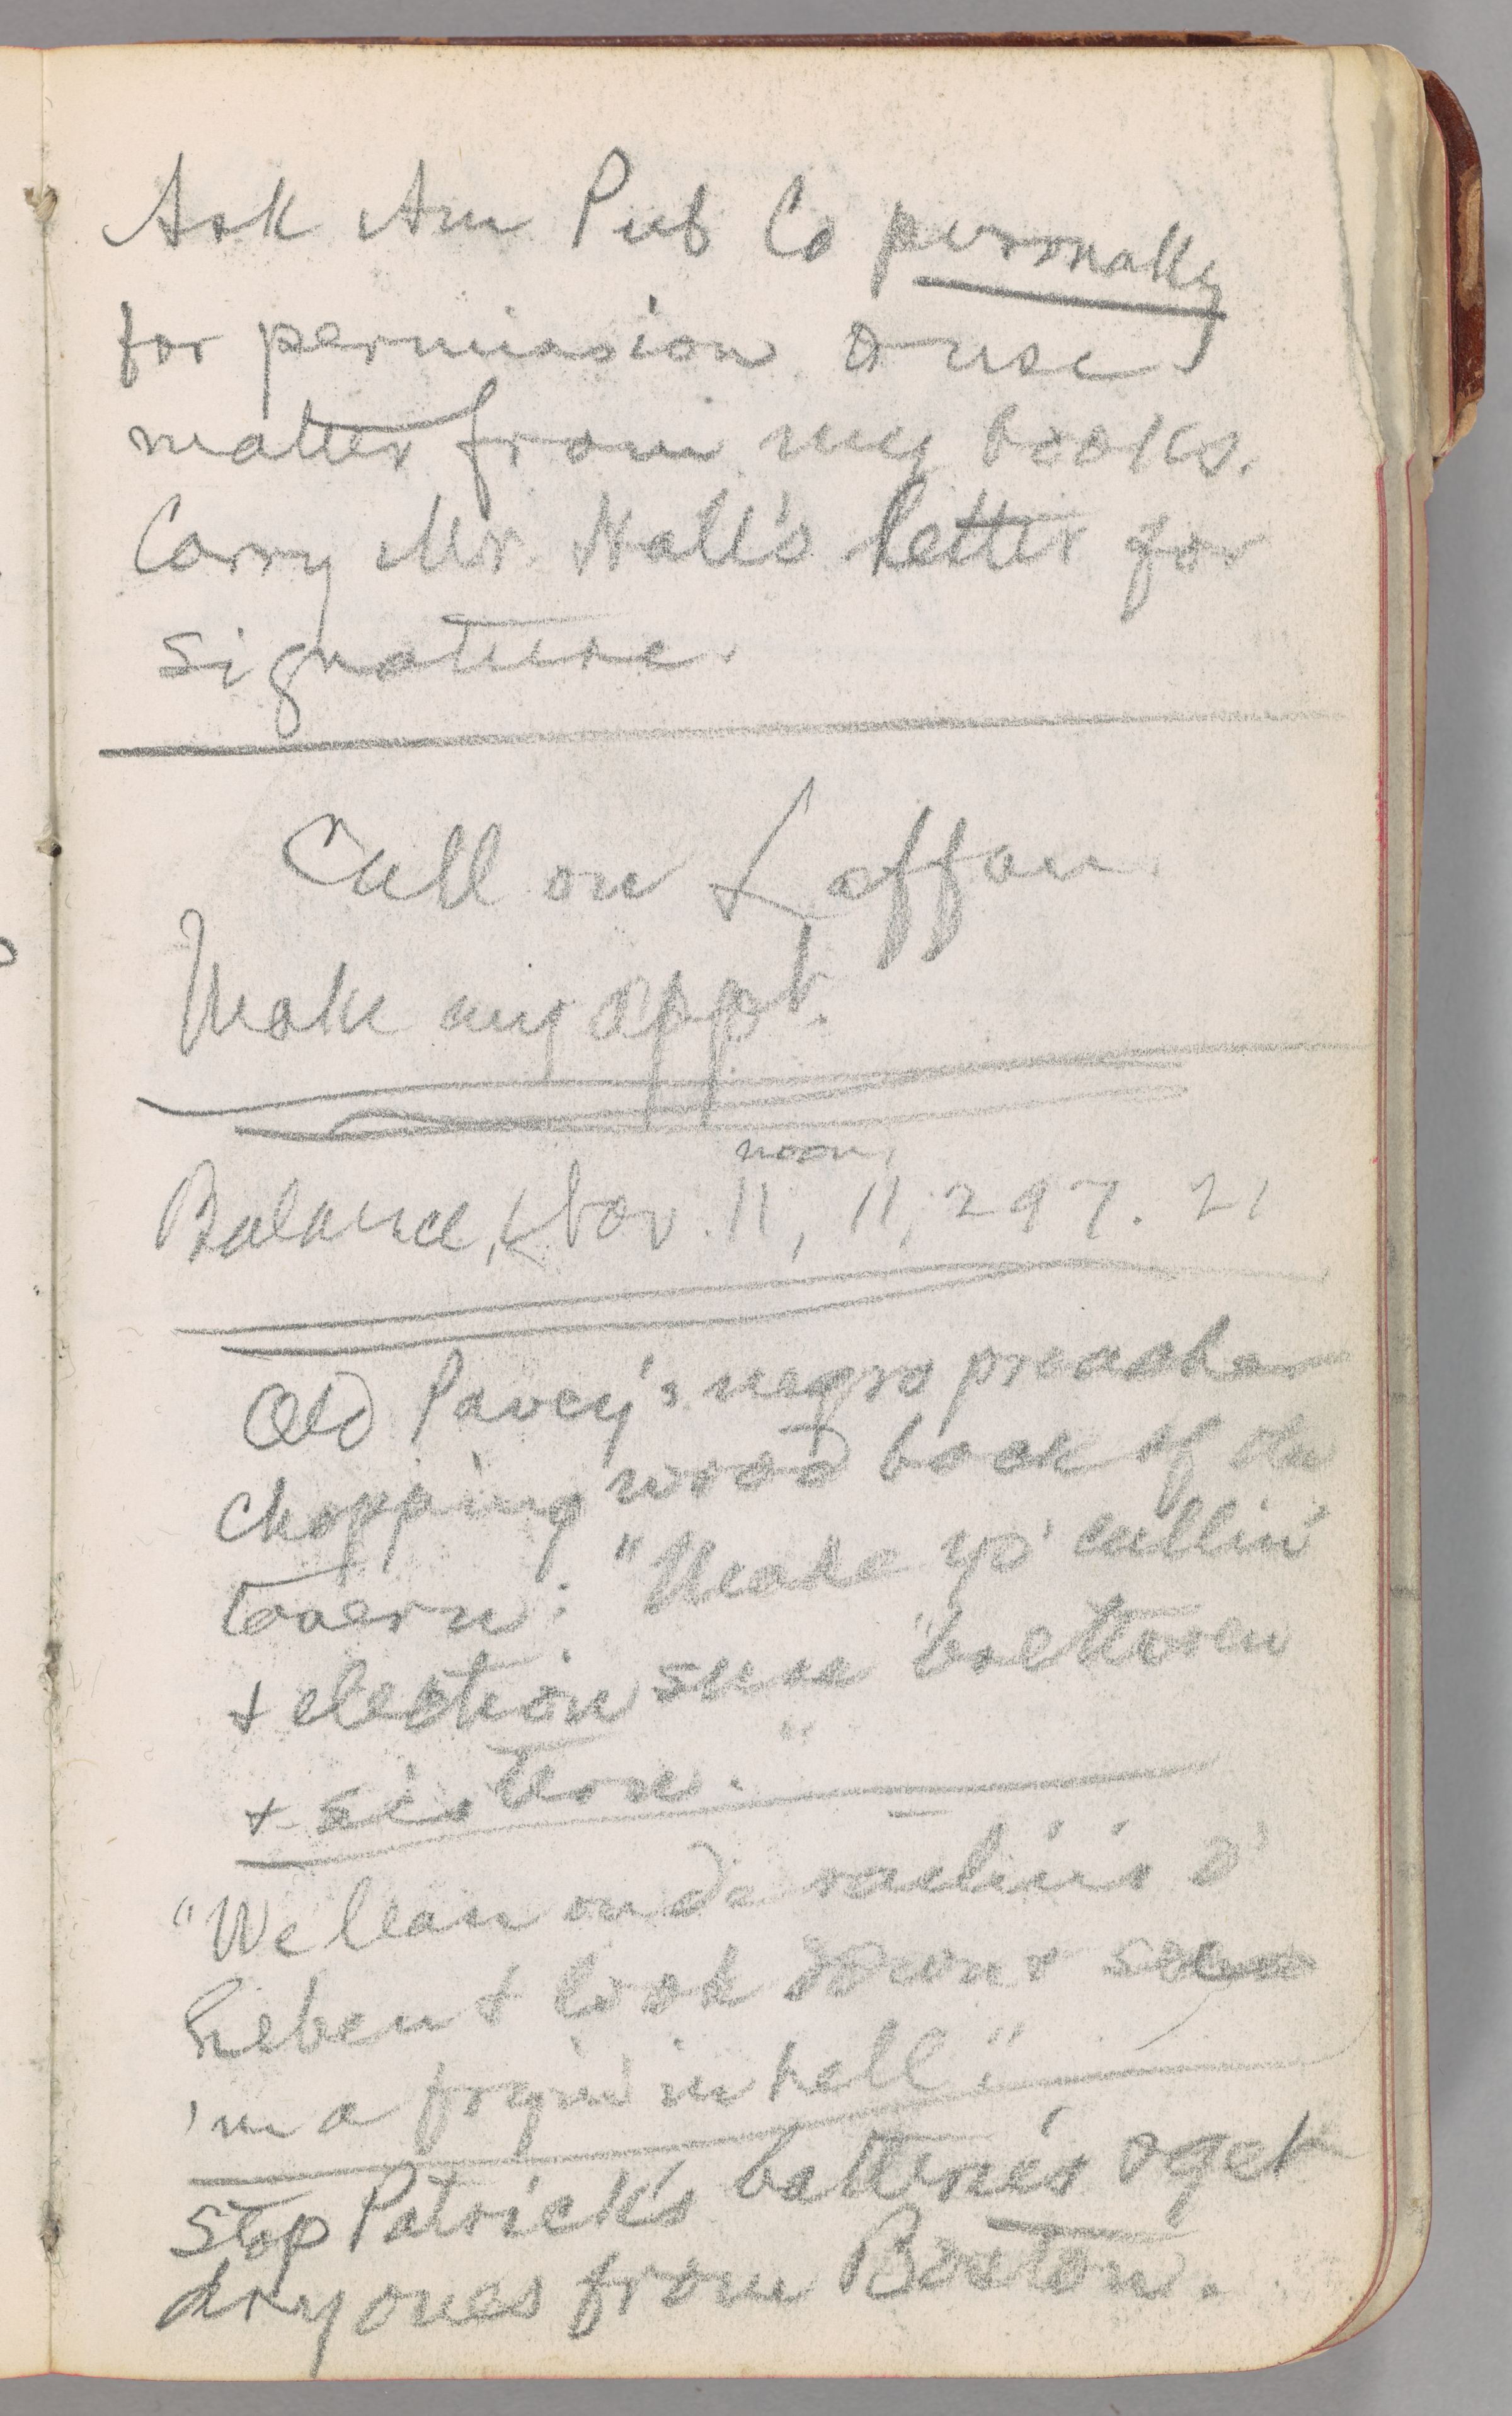 Ask Am Pub Co personally
for permission to use
matter from my books.
Carry Mr. Hall's letter for
signature.
Call on Laffan.
Make my appt.
noon,
Balance, Nov. 11, 11,297.21
Old Pavey's negro preacher
chopping wood back of the
tavern: "Make yo' callin'
& election sure brethren
& sistern."
"We lean on de railin's o'
heben & look down &
I'm a fryin' in hell!"
Stop Patrick's batteries & get
dry ones from Boston.